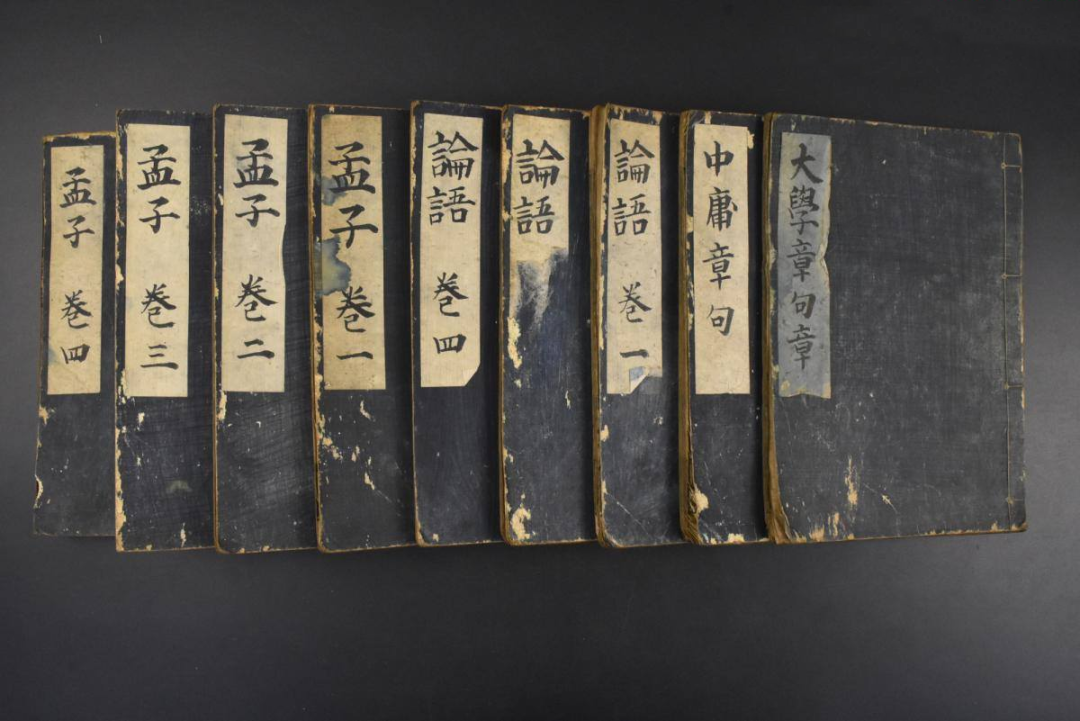 大學章句章
中庸章句
論語 巻一
論語
論語 巻四
孟子 巻一
孟子 巻二
孟子 巻三
孟子 巻四